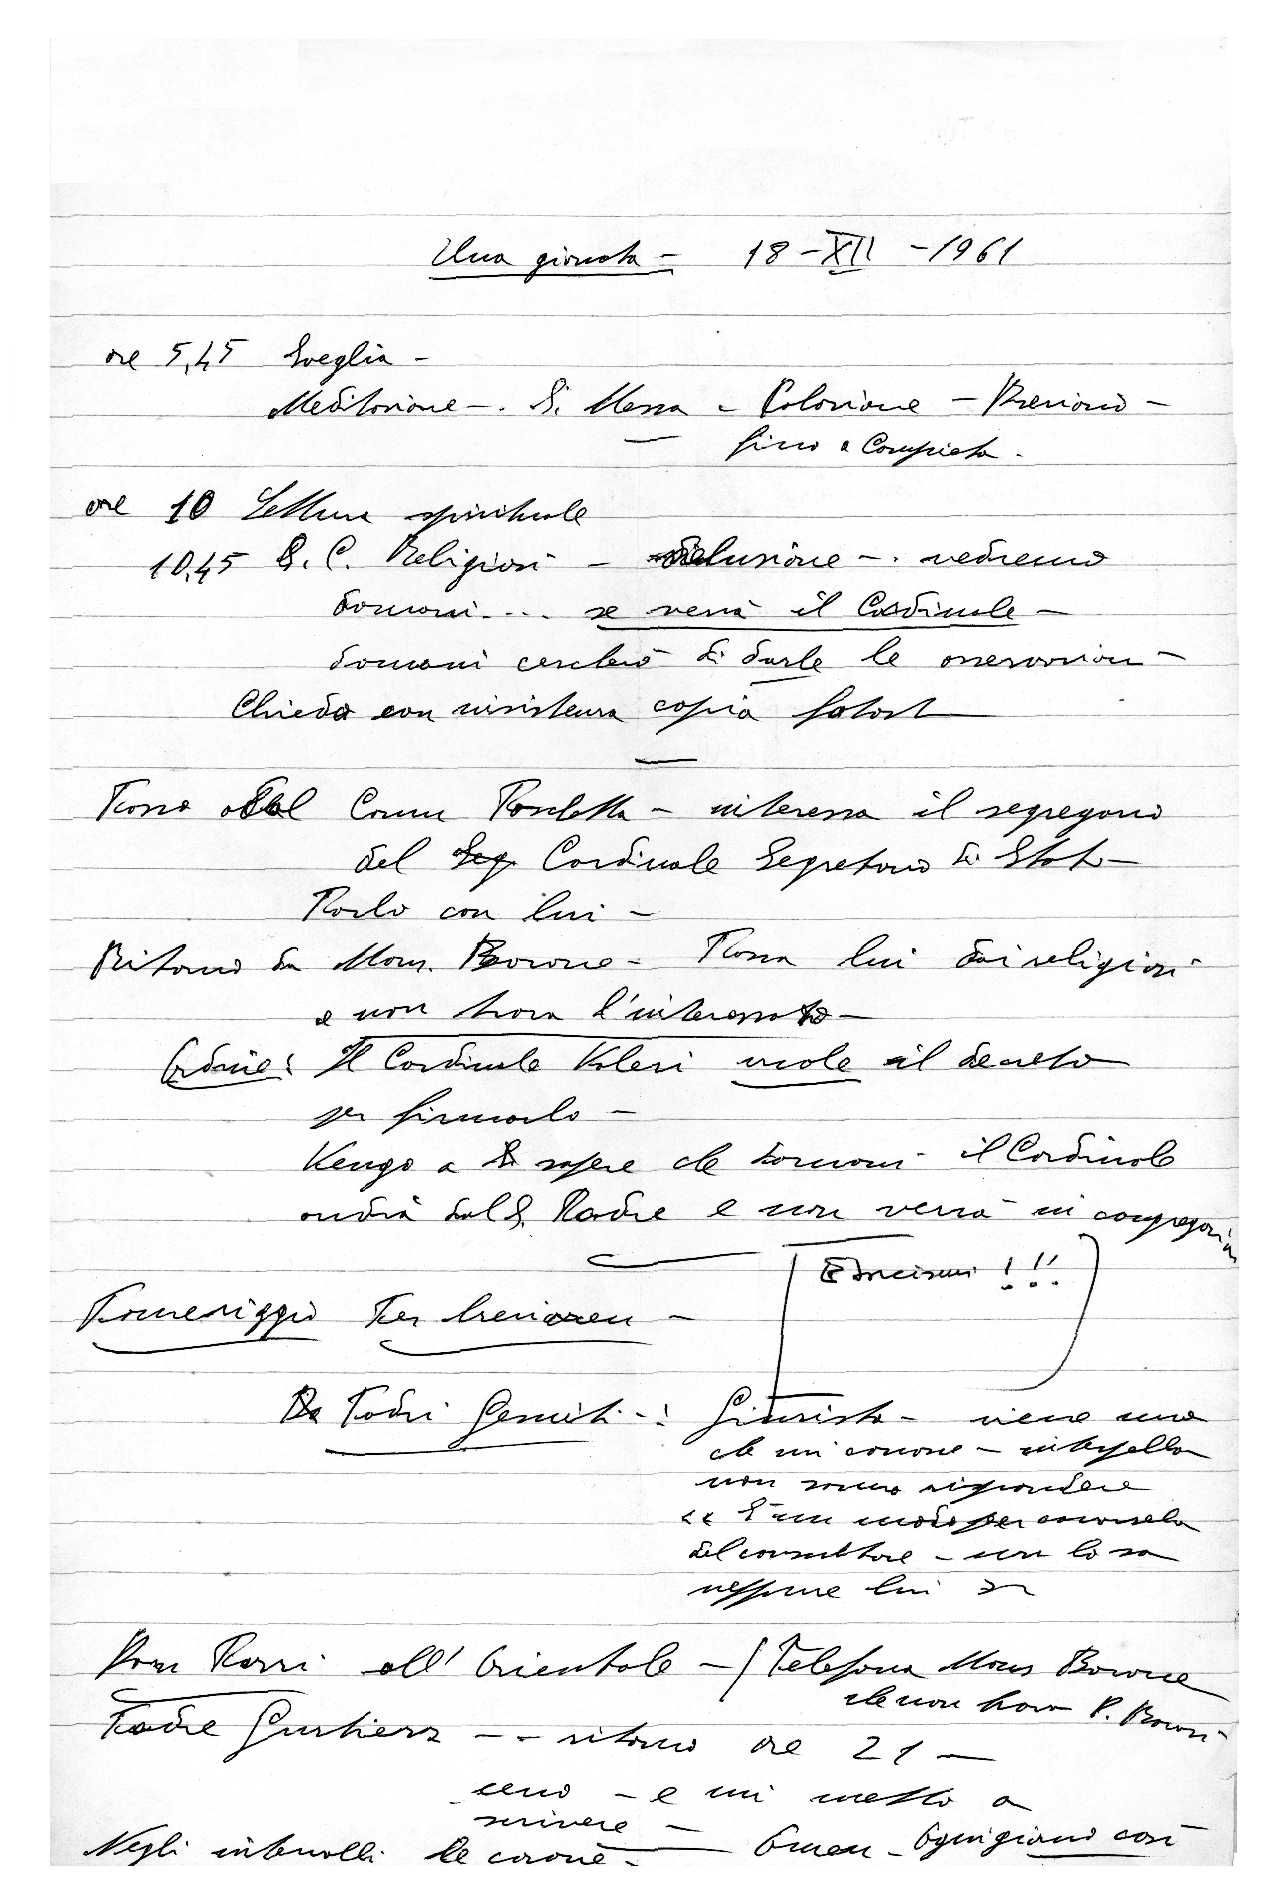 Una giornata – 18 – XII – 1961
ore 5,45 Sveglia –
Meditazione –. S. Messa – Colazione – Breviario –
fino a Compieta.
ore 10 Lettura spirituale
10,45 S. C. Religiosi – delusione –. vedremo
domani... se verrà il Cardinale –
domani cercherò di darle le osservazioni –
Chiedo con insistenza copia fotost
Passo dal Comm – interessa il segretario
del Seg Cardinale Segretario di Stato –
Parlo con lui –
Ritorno da Mons. Barone – Passa lui dai religiosi
e non trova l'interessato –
Ordine: Il Cardinale Valeri vuole il decreto
per firmarlo –
Vengo a sapere che domani il Cardinale
andrà dal S. Padre e non verrà in congregazion
Esorcismi !!!
Pomeriggio Per
Da Padri Gesuiti –: Giurista – viene uno
che mi – interpella
non sanno rispondere
<< È un modo per
del consultore – non lo sa
neppure lui >>
Don Rossi all'Orientale – / Telefona Mons Barone
che non trova P.
Padre – – ritorno ore 21 –
ceno – e mi metto a
scrivere –
Negli intervalli le corone – Amen – Ogni giorno così